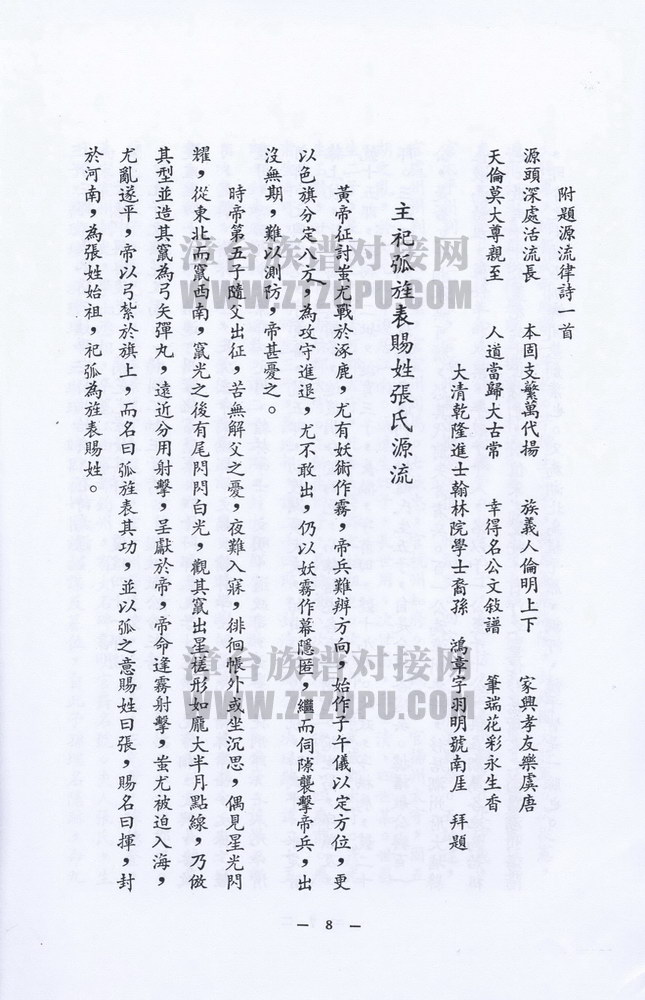 附題源流律詩一首
源頭深處活流長　本固支繁萬代揚　族義人倫明上下　家興孝友樂虞唐
天倫莫大尊親至　人道當歸大古常　幸得名公文敍譜　筆端花彩永生香
大清乾隆進士翰林院學士裔孫　鴻章字羽明號南厓　拜題
主祀弧旌表賜姓張氏源流
黃帝征討蚩尤戰於涿鹿，尤有妖術作霧，帝兵難辨方向，始作子午儀以定方位，更
以色旗分定八方，為攻守進退，尤不敢出，仍以妖霧作幕隱匿，繼而伺隙襲擊帝兵，出
沒無期，難以測防，帝甚憂之。
時帝第五子隨父出征，苦無解父之憂，夜難入寐，徘徊帳外或坐沉思，偶見星光閃
耀，從東北而竄西南，竄光之後有尾閃閃白光，觀其竄出星槎形如龐大半月點線，乃倣
其型並造其竄為弓矢彈丸，遠近分用射擊，呈獻於帝，帝命逢霧射擊，蚩尤被迫入海，
尤亂遂平，帝以弓紮於旗上，而名曰弧旌表其功，並以弧之意賜姓曰張，賜名曰揮，封
於河南，為張姓始祖，祀弧為旌表賜姓。
— 8 —
漳台族谱对接网
WWW.ZTZUPU.COM
漳台族谱对接网
WWW.ZTZUPU.COM